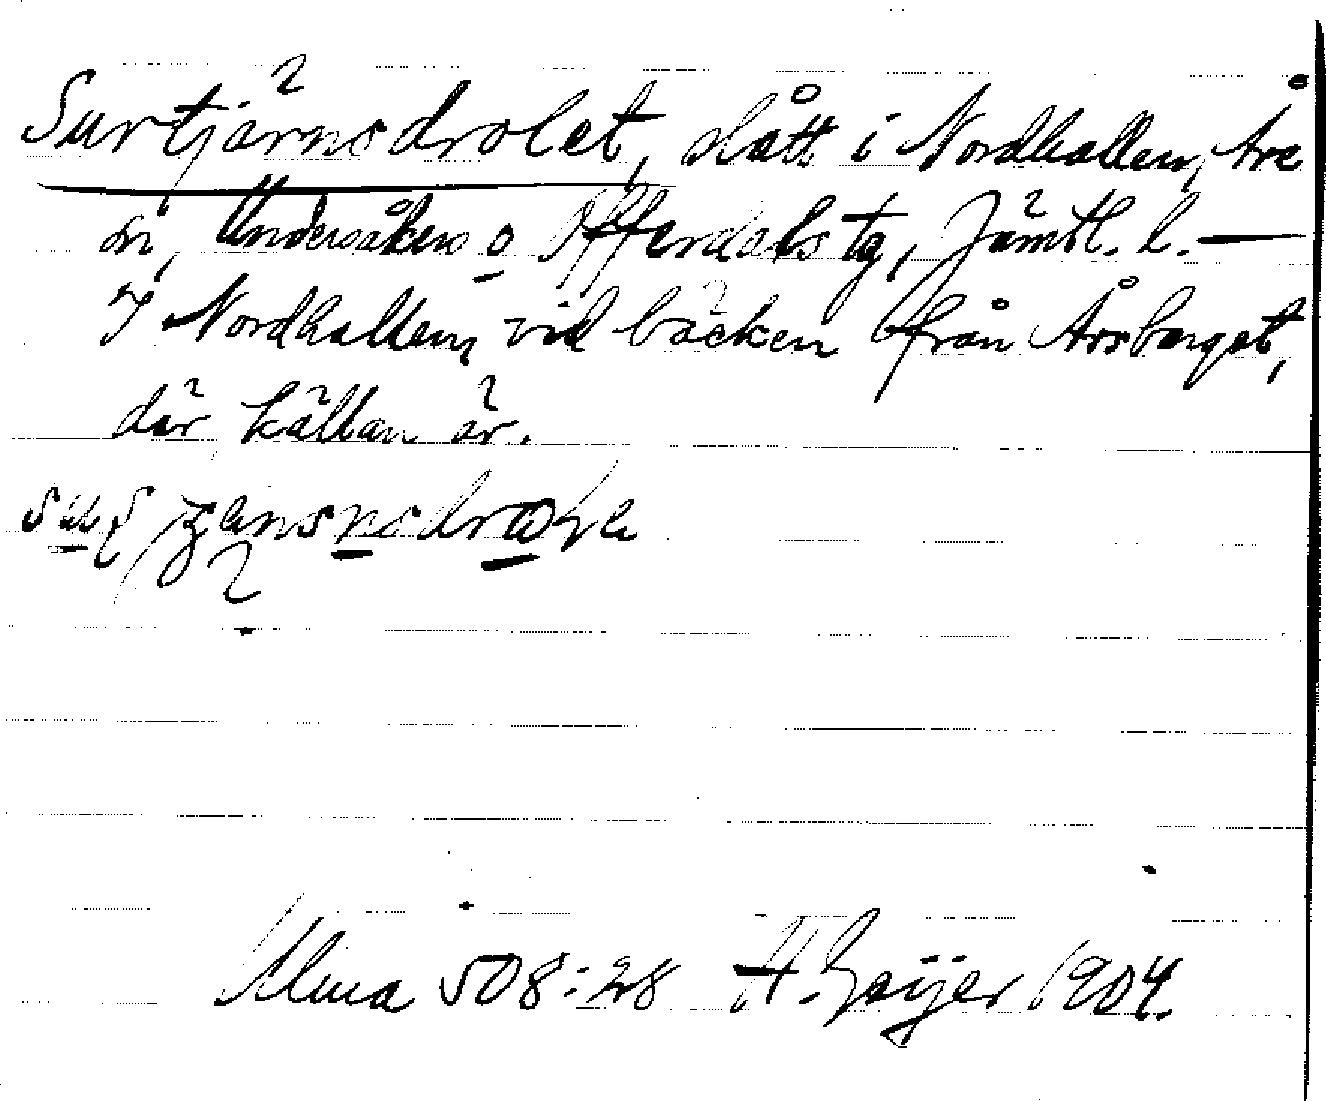 Surtjärnsdrolet, slått i Nordhallen, Åre
sn, Undersåkers o Offerdals tg, Jämtl. l. —
I Nordhallen, vid bäcken från Årsberget,
där källan är.
Ulma 508:28 H. Geijer 1904.